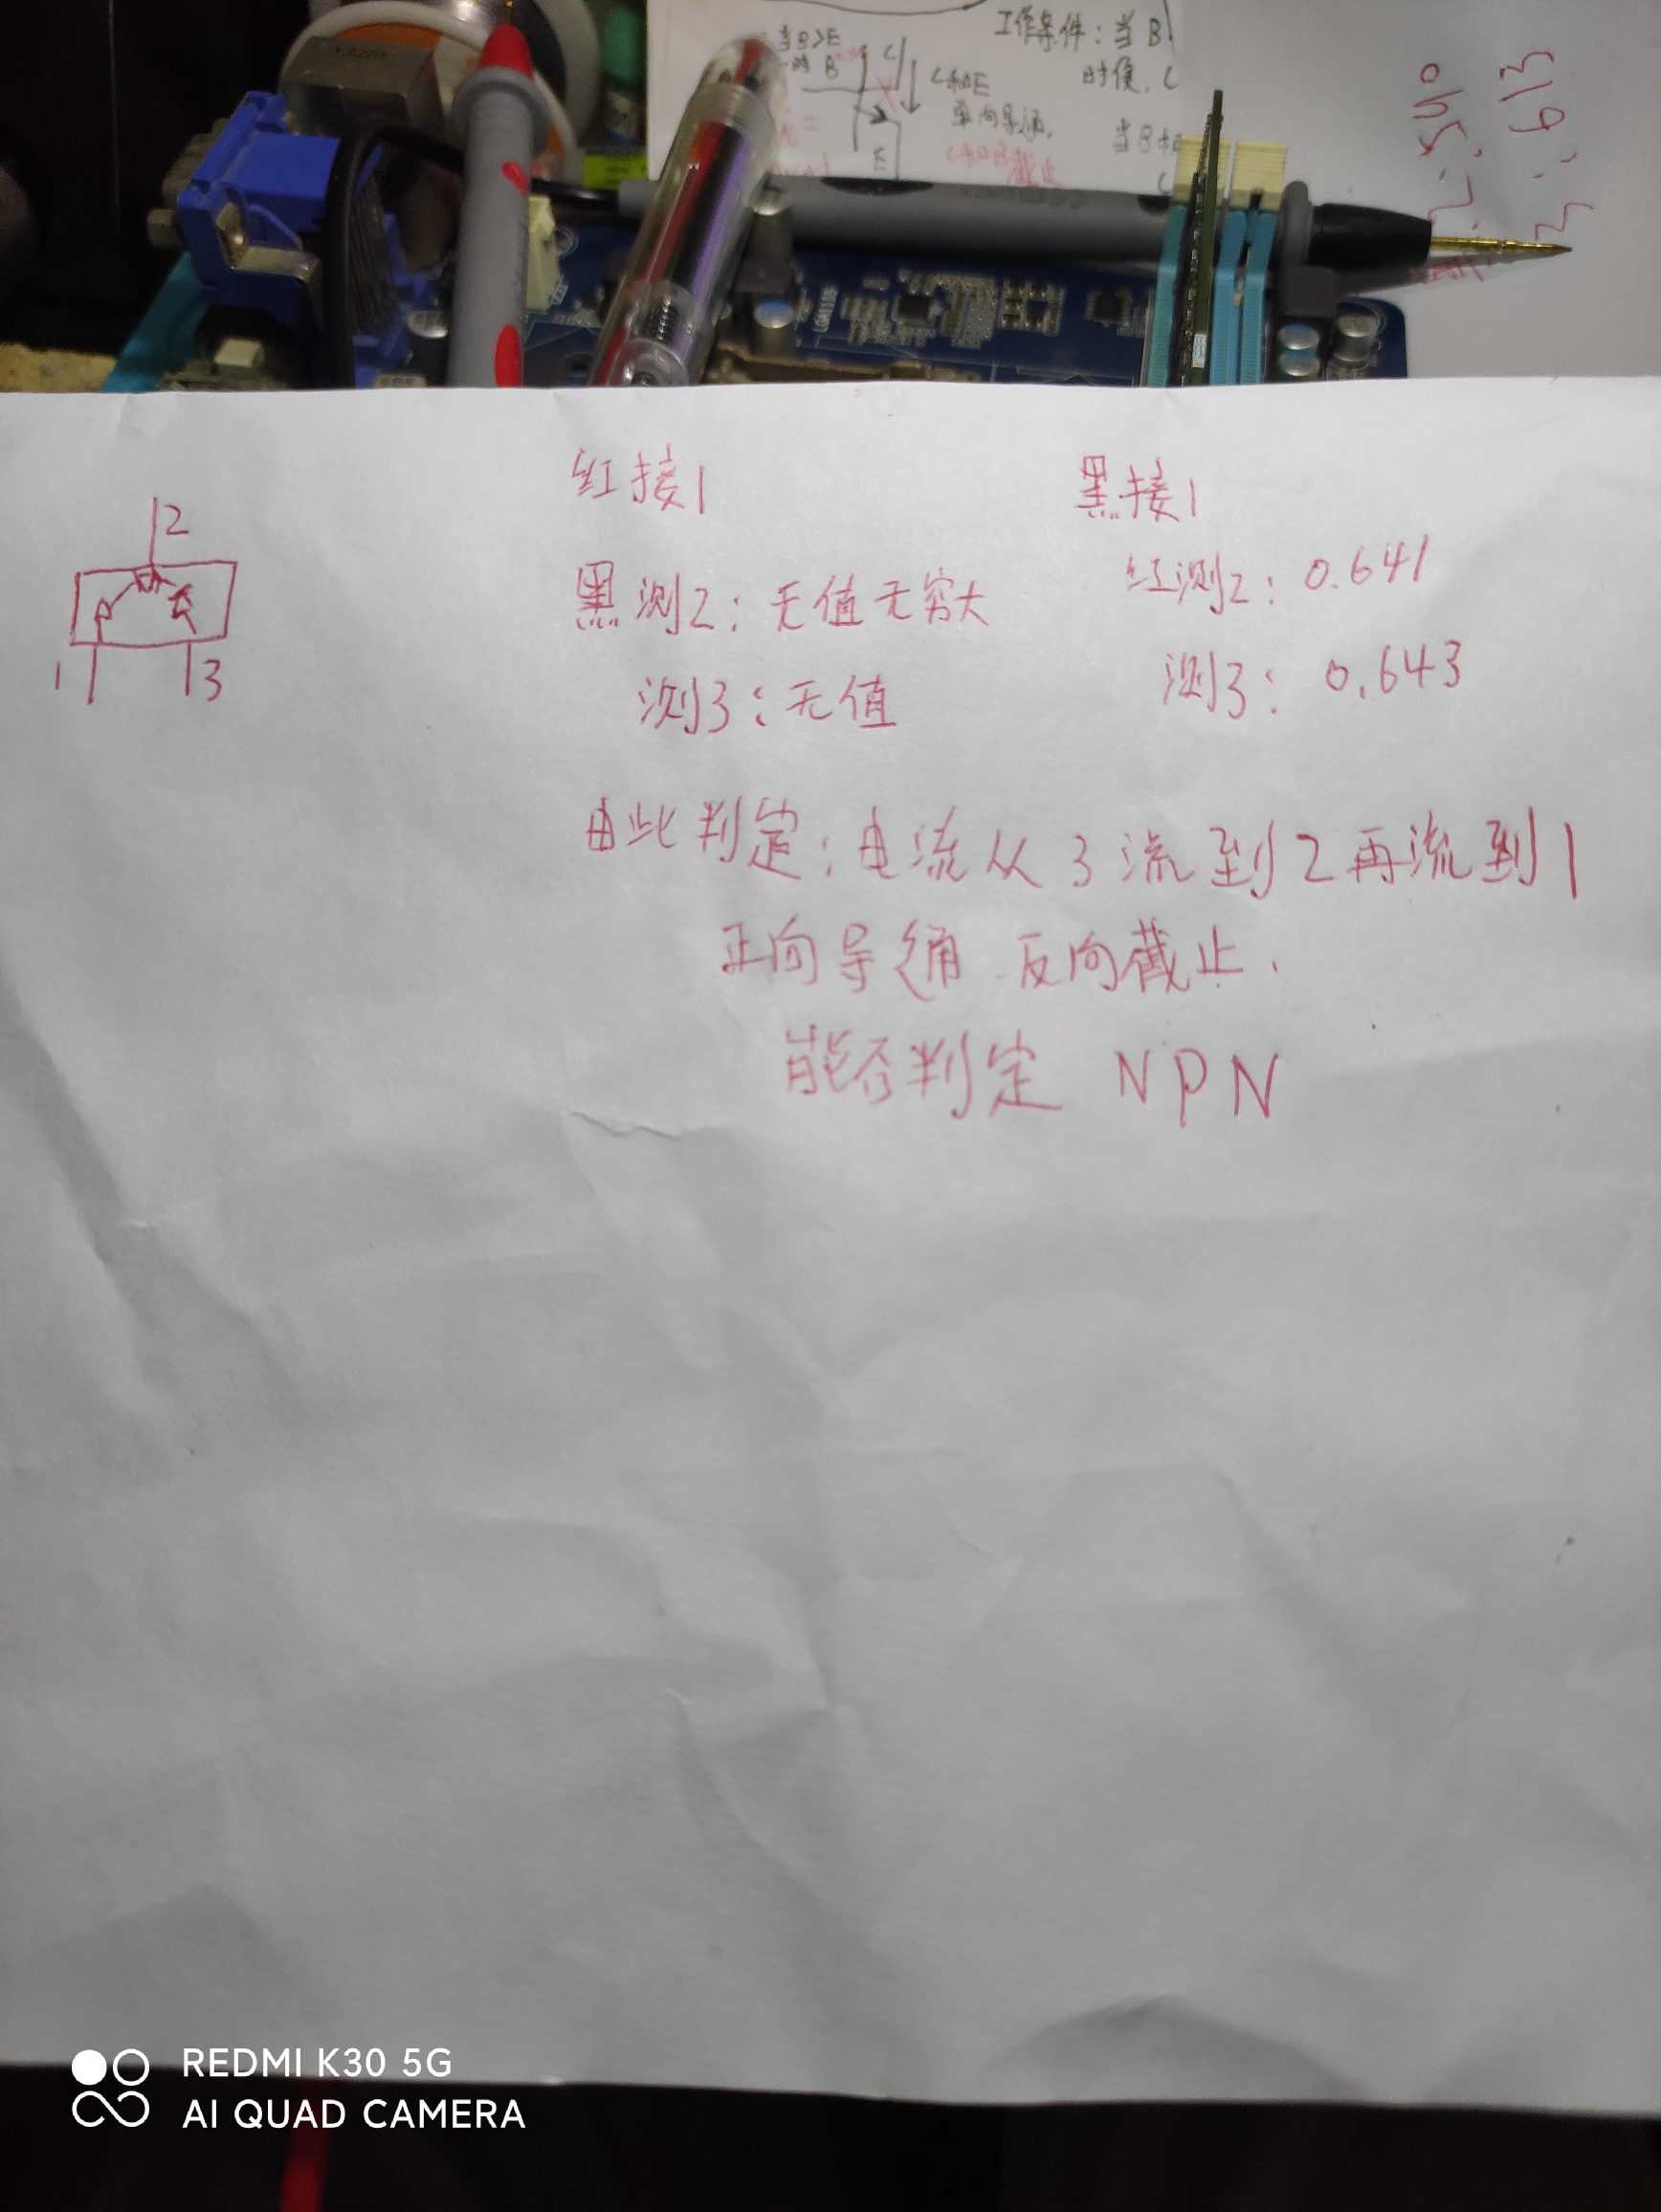 当B>E
时 B
C
C和E
单向导通,
C和B截止
E
工作条件：当B
时候，C
当B
LGA1155
2
1
3
红接1
黑测2：无值无穷大
测3：无值
黑接1
红测2：0.641
测3：0.643
由此判定：电流从3流到2再流到1
正向导通 反向截止.
能否判定 NPN
REDMI K30 5G
AI QUAD CAMERA